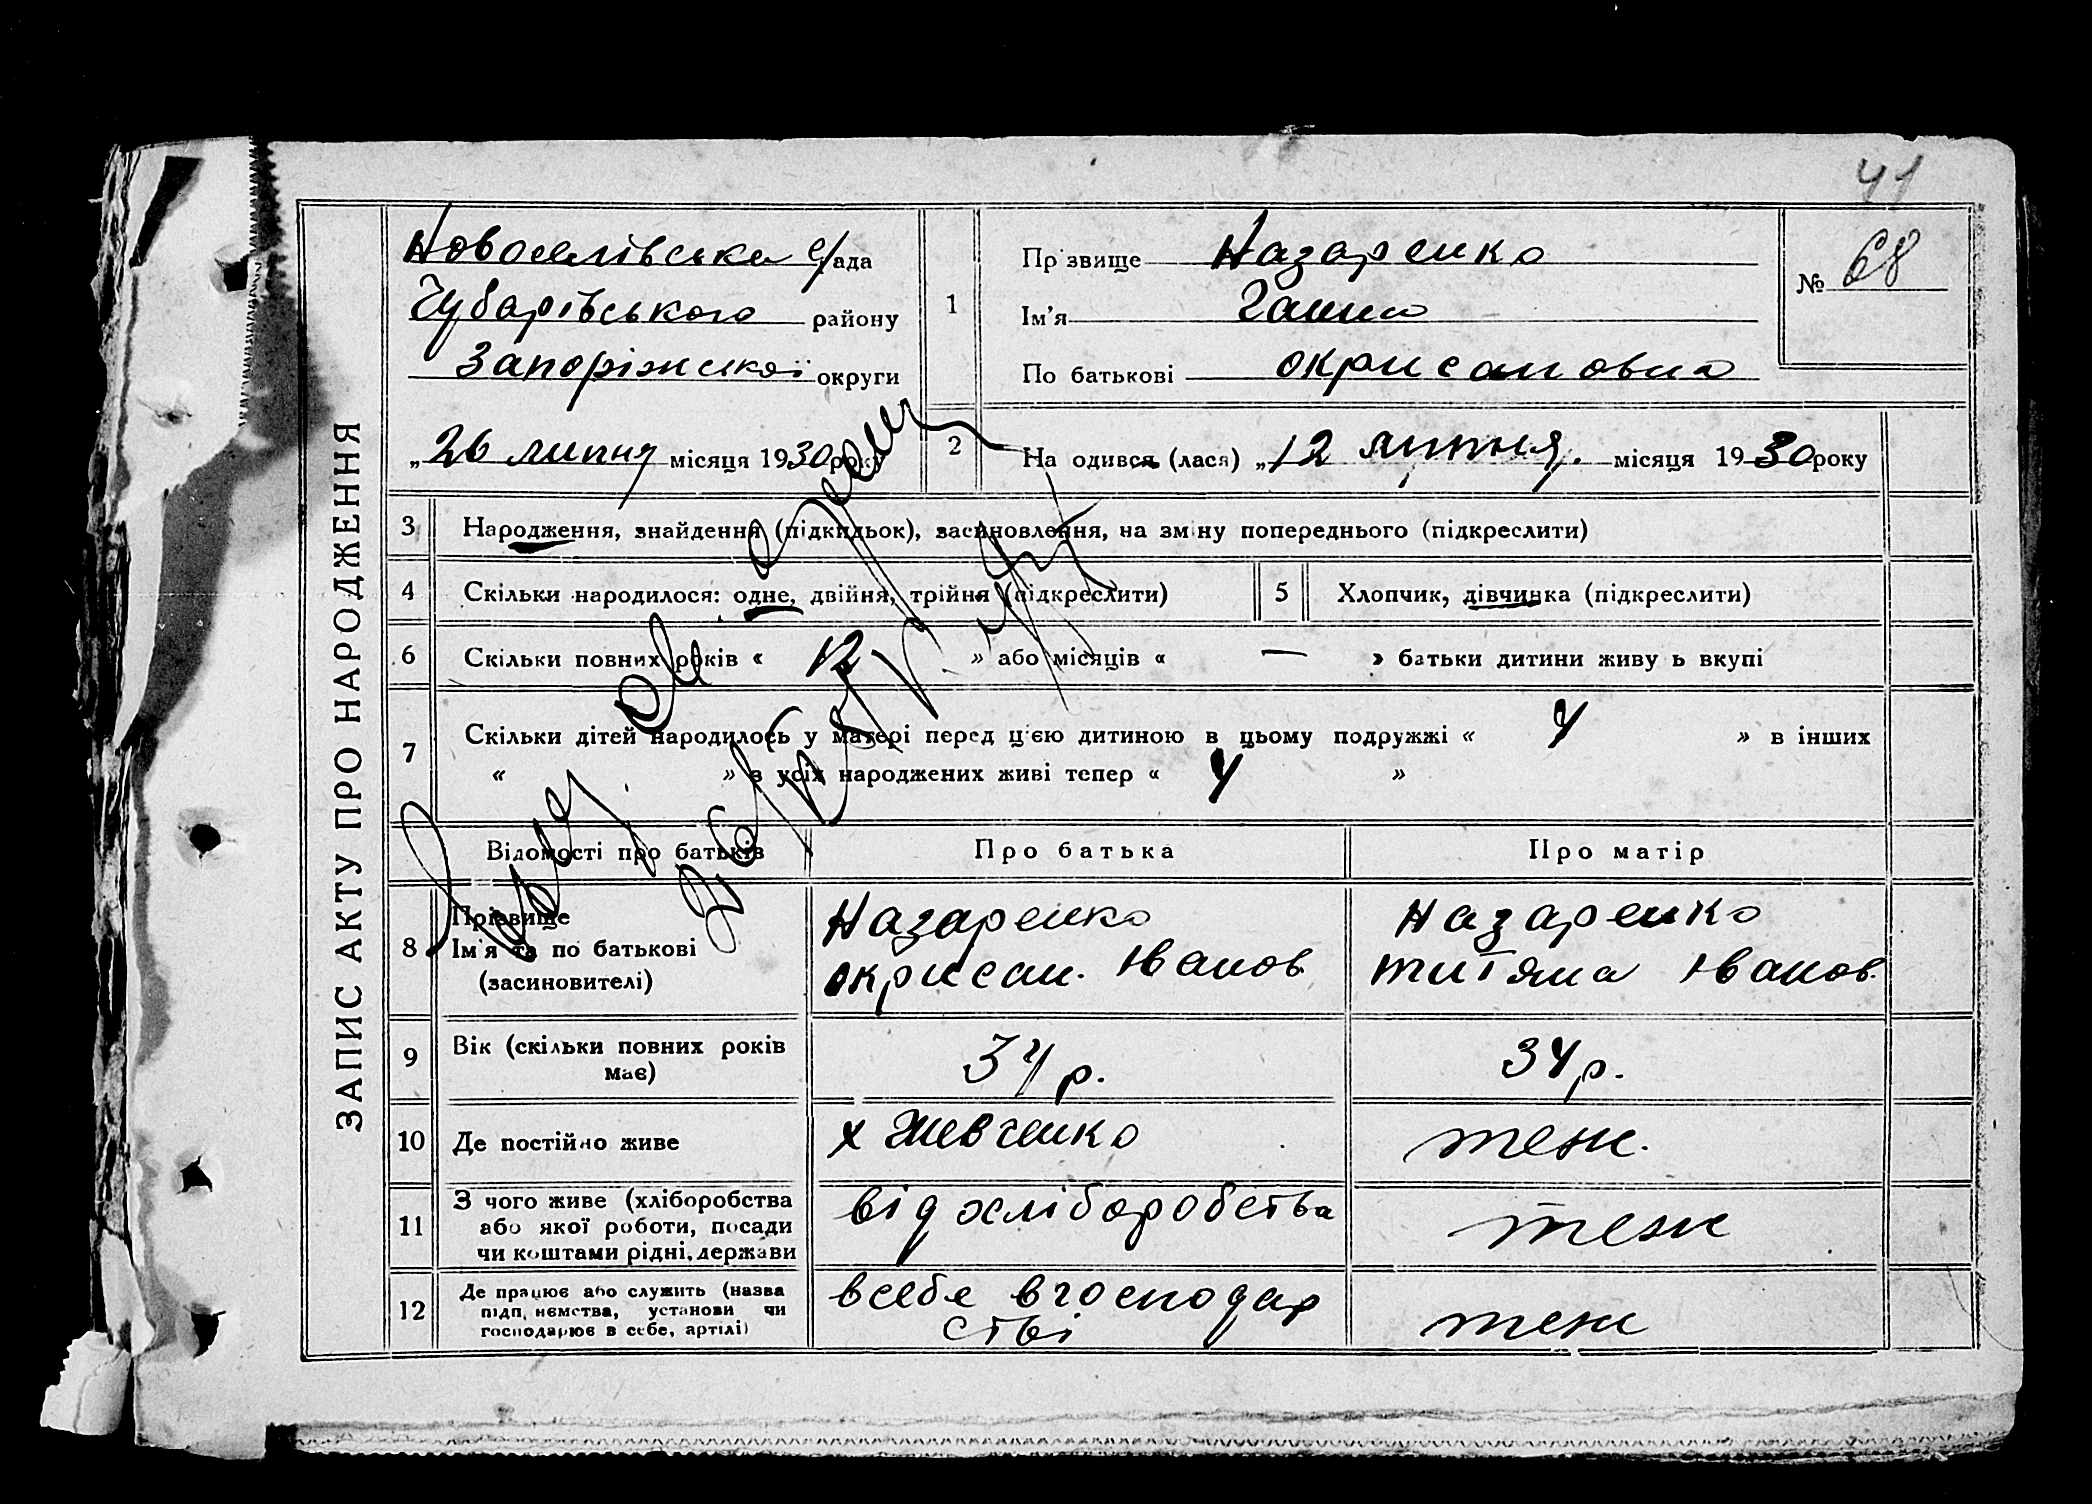 41
ЗАПИС АКТУ ПРО НАРОДЖЕННЯ
Новоселівська с/рада
Чубарівського району
Запоріжської округи
„26 липня місяця 1930 року
1
Прізвище Назаренко
Ім'я Ганна
По батькові Окрисановна
№ 68
2 На одився (лася) „12 липня. місяця 1930 року
3 Народження, знайдення (підкидьок), засиновлення, на зміну попереднього (підкреслити)
4 Скільки народилося: одне, двійня, трійня (підкреслити) 5 Хлопчик, дівчинка (підкреслити)
6 Скільки повних років « 12 » або місяців « — » батьки дитини живу ь вкупі
7 Скільки дітей народилось у матері перед ц'єю дитиною в цьому подружжі « 4 » в інших
« » з усіх народжених живі тепер « 4 »
Відомості про батьків Про батька Про матір
8 Прізвище
Ім'я та по батькові
(засиновителі)
Назаренко
Окрисан. Іванов
Назаренко
Титяна Іванов.
9 Вік (скільки повних років
має)
34 р.
34 р.
10 Де постійно живе х Шевченко теж.
11 З чого живе (хліборобства
або якої роботи, посади
чи коштами рідні, держави
від хліборобства
теж
12 Де працює або служить (назва
підп, ємства, установи чи
господарює в себе, артілі)
всебе вгосподар
стві
теж